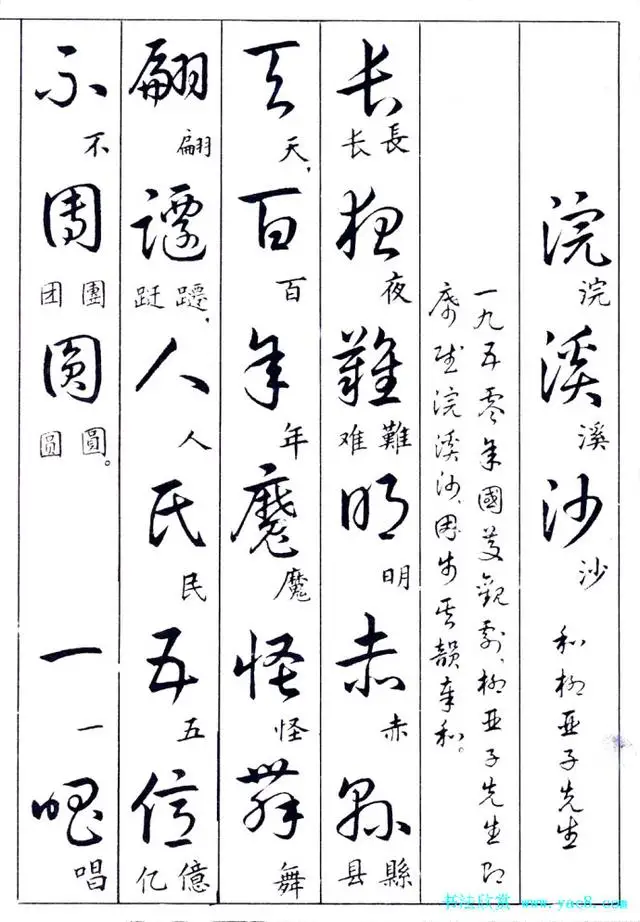 浣溪沙 和柳亚子先生
浣溪沙
一九五零年國慶觀劇，柳亚子先生即
席赋浣溪沙，因步其韻奉和。
長夜難明赤縣
長长 夜 難难 明 赤 縣县
天百年魔怪舞
天， 百 年 魔 怪 舞
翩躚人民五億
翩 躚跹， 人 民 五 億亿
不團圓 一唱
不 團团 圓圆。 一 唱
书法欣赏 www.yac8.com